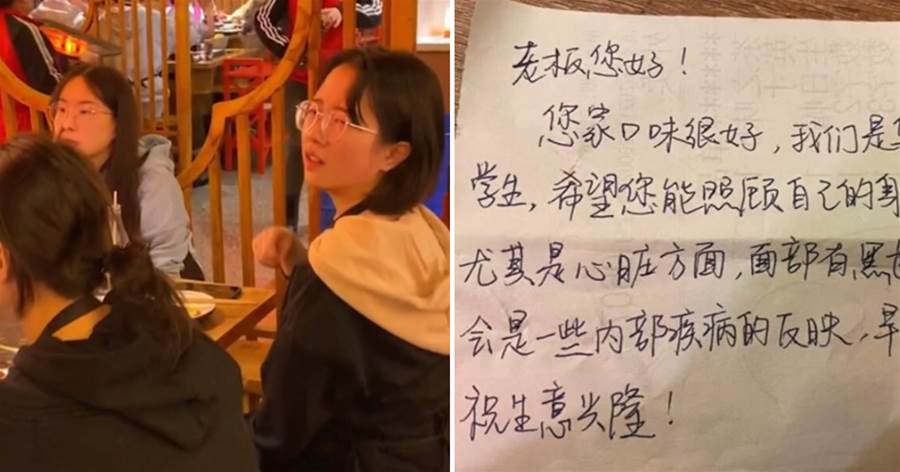 老板您好！
您家口味很好，我们是
学生，希望您能照顾自己的
尤其是心脏方面，面部有黑
会是一些内部疾病的反映，早
祝生意兴隆！